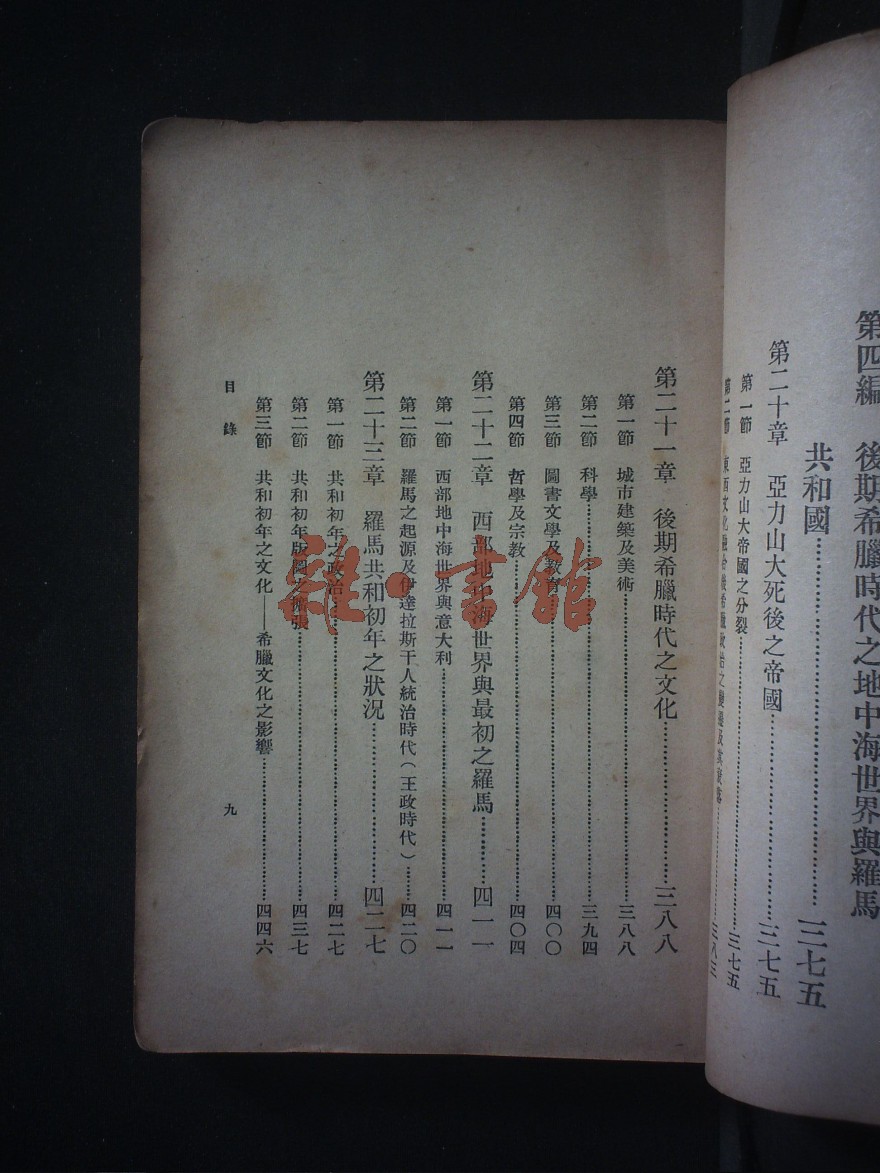 第四編　後期希臘時代之地中海世界與羅馬
共和國……三七五
第二十章　亞力山大死後之帝國……三七五
第一節　亞力山大帝國之分裂……三七五
第二節　東西文化融合後希臘政治之變遷及其……三八三
第二十一章　後期希臘時代之文化……三八八
第一節　城市建築及美術……三八八
第二節　科學……三九四
第三節　圖書文學及教育……四〇〇
第四節　哲學及宗教……四〇四
第二十二章　西部地中海世界與最初之羅馬……四一一
第一節　西部地中海世界與意大利……四一一
第二節　羅馬之起源及伊達拉斯干人統治時代（王政時代）……四二〇
第二十三章　羅馬共和初年之狀況……四二七
第一節　共和初年之政治……四二七
第二節　共和初年版圖之擴張……四三七
第三節　共和初年之文化——希臘文化之影響……四四六
目錄
九
雜·書館